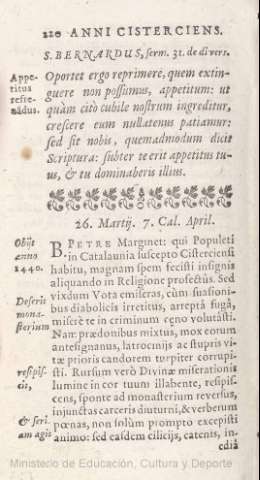 220 ANNI CISTERCIENS.
S. BERNARDUS, serm. 31. de divers.
Appe-
titus
refre-
nãdus.
Oportet ergo reprimere, quem extin-
guere non possumus, appetitum: ut
quàm citò cubile nostrum ingreditur,
crescere eum nullatenus patiamur:
sed sit nobis, quemadmodum dicit
Scriptura: subter te erit appetitus tu-
us, & tu dominaberis illius.
26. Martij. 7. Cal. April.
Obijt
anno
1440.
B. PETRE Marginet: qui Populeti
in Catalaunia suscepto Cisterciensi
habitu, magnam spem fecisti insignis
aliquando in Religione profectus. Sed
Deserit
mona-
sterium
vixdum Vota emiseras, cùm suasioni-
bus diabolicis irretitus, arreptâ fugâ,
miserè te in criminum cęno volutâsti.
Nam prædonibus mixtus, mox eorum
antesignanus, latrocinijs ac stupris vi-
tæ prioris candorem turpiter corrupi-
resipis-
cit,
sti. Rursum verò Divinæ miserationis
lumine in cor tuum illabente, resipis-
cens, sponte ad monasterium reversus,
injunctas carceris diuturni, & verberum
& seri-
am agis
pœnas, non solùm prompto excepisti
animo: sed easdem cilicijs, catenis, in-
ediâ
Ministerio de Educación, Cultura y Deporte